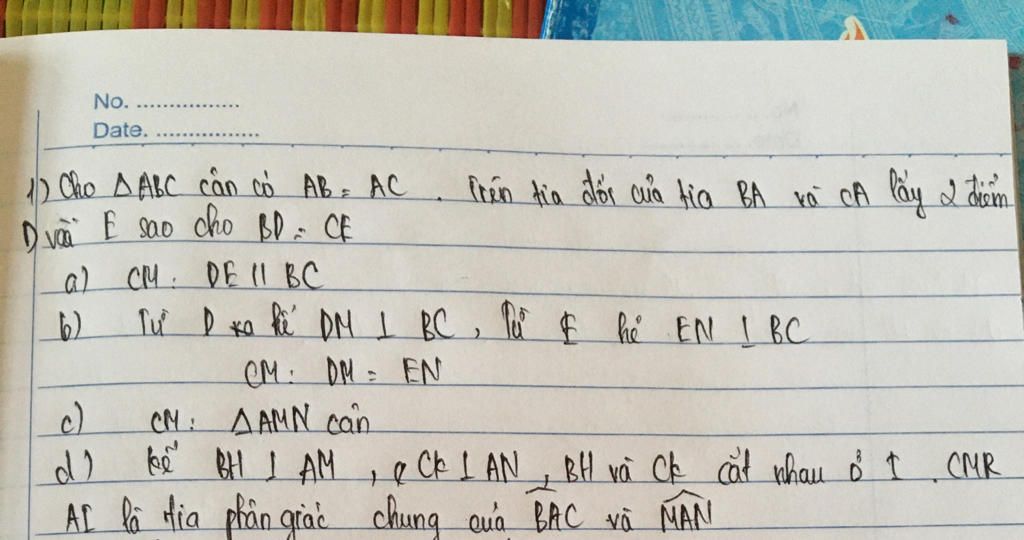 No. ................
Date. ................
1) Cho △ABC cân có AB = AC. Trên tia đối của tia BA và CA lấy 2 điểm
D và E sao cho BD = CE
a) CM: DE || BC
b) Từ D kẻ DM ⊥ BC, Từ E kẻ EN ⊥ BC
CM: DM = EN
c) CM: △AMN cân
d) kẻ BH ⊥ AM, CK ⊥ AN, BH và CK cắt nhau ở I. CMR
AI là tia phân giác chung của BAC và MAN